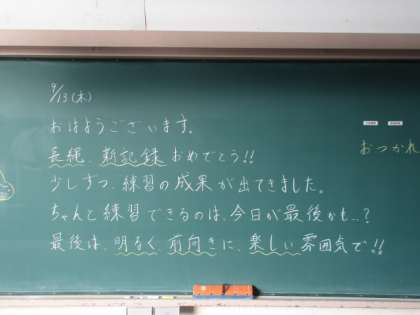 9/13(木)
おはようございます。
長縄、新記録おめでとう!!
少しずつ、練習の成果が出てきました。
ちゃんと練習できるのは、今日が最後かも..?
最後は、明るく、前向きに、楽しい雰囲気で!!
おつかれ